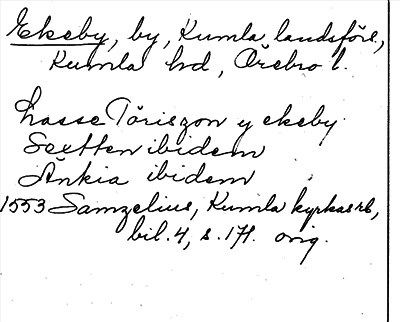 Ekeby, by, Kumla landsförs.,
Kumla hd, Örebro l.
Lasse Töriszon y ekeby
Seetten ibidem
Änkia ibidem
1553 Samzelius, Kumla kyrkas rb,
bil. 4, s. 171. orig.